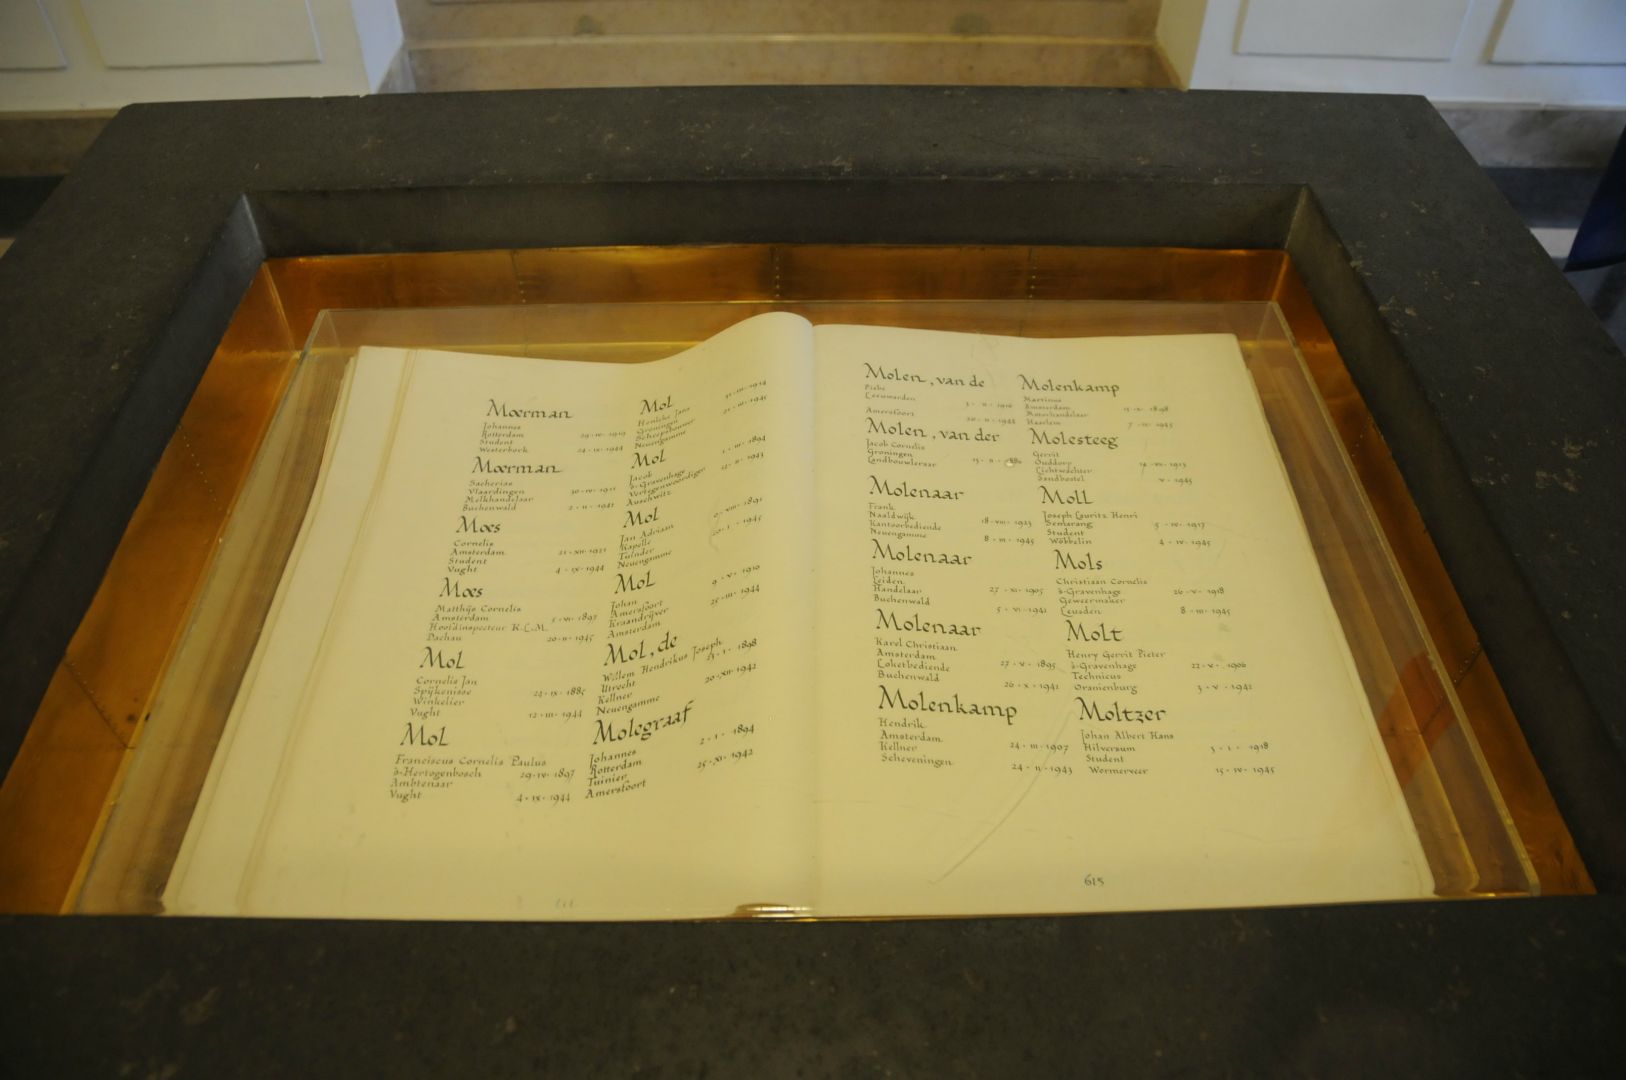 Moerman
Johannes
Rotterdam 29-IV-1919
Student
Westerbork 24-IX-1944
Moerman
Sacherias
Vlaardingen 30-IV-1911
Melkhandelaar
Buchenwald 2-II-1941
Moes
Cornelis
Amsterdam 21-XII-1921
Student
Vught 4-IX-1944
Moes
Matthijs Cornelis
Amsterdam 5-VI-1897
Hoofdinspecteur K.L.M.
Dachau 20-II-1945
Mol
Cornelis Jan
Spijkenisse 24-IX-1885
Winkelier
Vught 12-III-1944
Mol
Franciscus Cornelis Paulus
's-Hertogenbosch 29-IV-1897
Ambtenaar
Vught 4-IX-1944
Mol
Hendrik Jans
Groningen
Scheepsbouwer
Neuengamme
Mol
Jacob 1-III-1894
's-Gravenhage
Vertegenwoordiger 12-II-1943
Auschwitz
Mol
Jan Adriaan
Kapelle
Tuinder
Neuengamme 20-I-1945
Mol
Johan 9-V-1910
Amersfoort
Kraandrijver 25-III-1944
Amsterdam
Mol, de
Willem Hendrikus Joseph
Utrecht
Kellner 20-XII-1942
Neuengamme
Molegraaf
Johannes 2-I-1894
Rotterdam
Tuinier 25-XI-1942
Amersfoort
Molen, van de
Piebe
Leeuwarden
Amersfoort 20-II-1944
Molen, van der
Jacob Cornelis
Groningen
Landbouwleraar
Molenaar
Frank
Naaldwijk 18-VIII-1923
Kantoorbediende
Neuengamme 8-III-1945
Molenaar
Johannes
Leiden
Handelaar 27-XI-1905
Buchenwald 5-VI-1941
Molenaar
Karel Christiaan
Amsterdam
Loketbediende 27-V-1895
Buchenwald 26-X-1941
Molenkamp
Hendrik
Amsterdam
Kellner 24-III-1907
Scheveningen 24-II-1943
Molenkamp
Martinus
Amsterdam
Motorhandelaar
Haarlem
Molesteeg
Gerrit
Ouddorp
Lichtwachter
Sandbostel V-1945
Moll
Joseph Lauritz Henri
Semarang 5-IV-1917
Student
Wöbbelin 4-IV-1945
Mols
Christiaan Cornelis
's-Gravenhage 26-V-1918
Geweermaker
Leusden 8-III-1945
Molt
Henry Gerrit Pieter
's-Gravenhage 22-V-1906
Technicus
Oranienburg 3-V-1942
Moltzer
Johan Albert Hans
Hilversum 3-I-1918
Student
Wormerveer 15-IV-1945
615